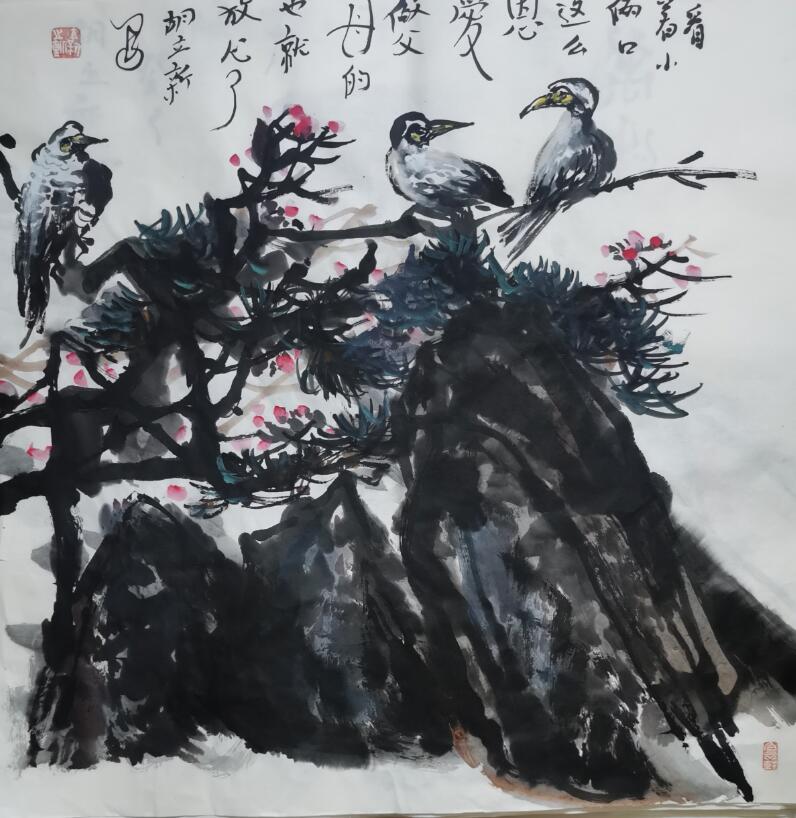 看
着小
俩口
这么
恩
愛
做父
母的
也就
放心了
胡立新